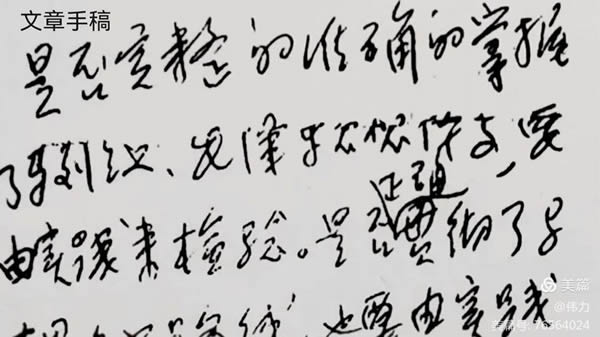 文章手稿
是否完整的准确的掌握
了马列、毛澤东思想体系,要
正确
由实践来检验。是否贯彻了
也要由实践
美篇
@伟力
美篇号: 76564024